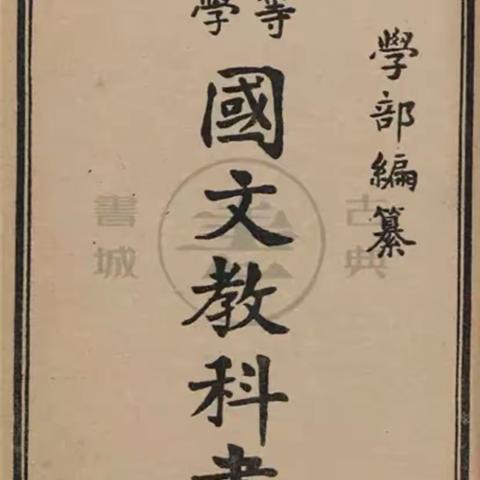 學部編纂
等
學
國文教科書
古典
書城